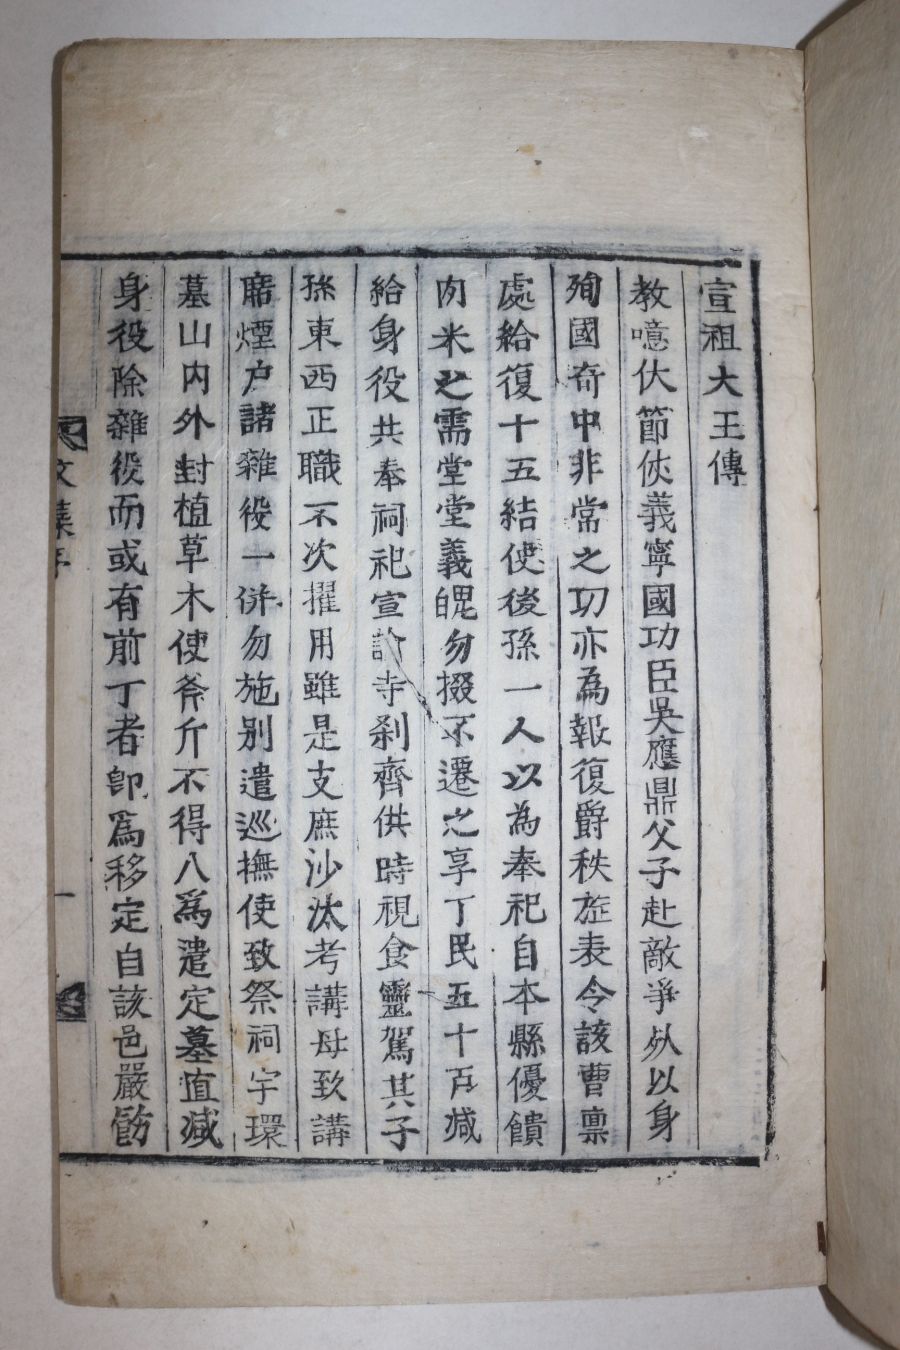 宣祖大王傳
教噫伏節仗義寧國功臣吳應鼎父子赴敵爭死以身
殉國奇中非常之功亦為報復爵秩旌表令該曹稟
處給復十五結使後孫一人以為奉祀自本縣優饋
肉米之需堂堂義魄勿掇不遷之享丁民五十戶减
給身役共奉祠祀宣諭寺刹齊供時視食靈駕其子
孫東西正職不次擢用雖是支庶沙汰考講毋致講
席煙户諸雜役一併勿施別遣巡撫使致祭祠宇環
墓山内外封植草木使斧斤不得入爲遣定墓直减
身役除雜役而或有前丁者卽爲移定自該邑嚴飭
文集序
一